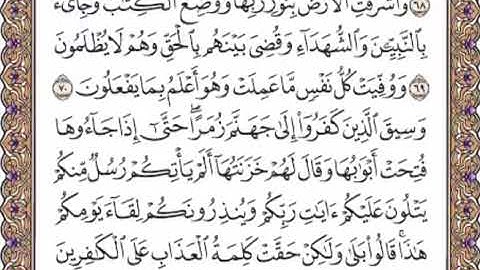 ٦٨ وَأَشْرَقَتِ ٱلْأَرْضُ بِنُورِ رَبِّهَا وَوُضِعَ ٱلْكِتَٰبُ وَجِا۟ىٓءَ
بِٱلنَّبِيِّـۧنَ وَٱلشُّهَدَآءِ وَقُضِىَ بَيْنَهُم بِٱلْحَقِّ وَهُمْ لَا يُظْلَمُونَ
٦٩ وَوُفِّيَتْ كُلُّ نَفْسٍ مَّا عَمِلَتْ وَهُوَ أَعْلَمُ بِمَا يَفْعَلُونَ ٧٠
وَسِيقَ ٱلَّذِينَ كَفَرُوٓا۟ إِلَىٰ جَهَنَّمَ زُمَرًا ۖ حَتَّىٰٓ إِذَا جَآءُوهَا
فُتِحَتْ أَبْوَٰبُهَا وَقَالَ لَهُمْ خَزَنَتُهَآ أَلَمْ يَأْتِكُمْ رُسُلٌ مِّنكُمْ
يَتْلُونَ عَلَيْكُمْ ءَايَٰتِ رَبِّكُمْ وَيُنذِرُونَكُمْ لِقَآءَ يَوْمِكُمْ
هَٰذَا ۚ قَالُوا۟ بَلَىٰ وَلَٰكِنْ حَقَّتْ كَلِمَةُ ٱلْعَذَابِ عَلَى ٱلْكَٰفِرِينَ